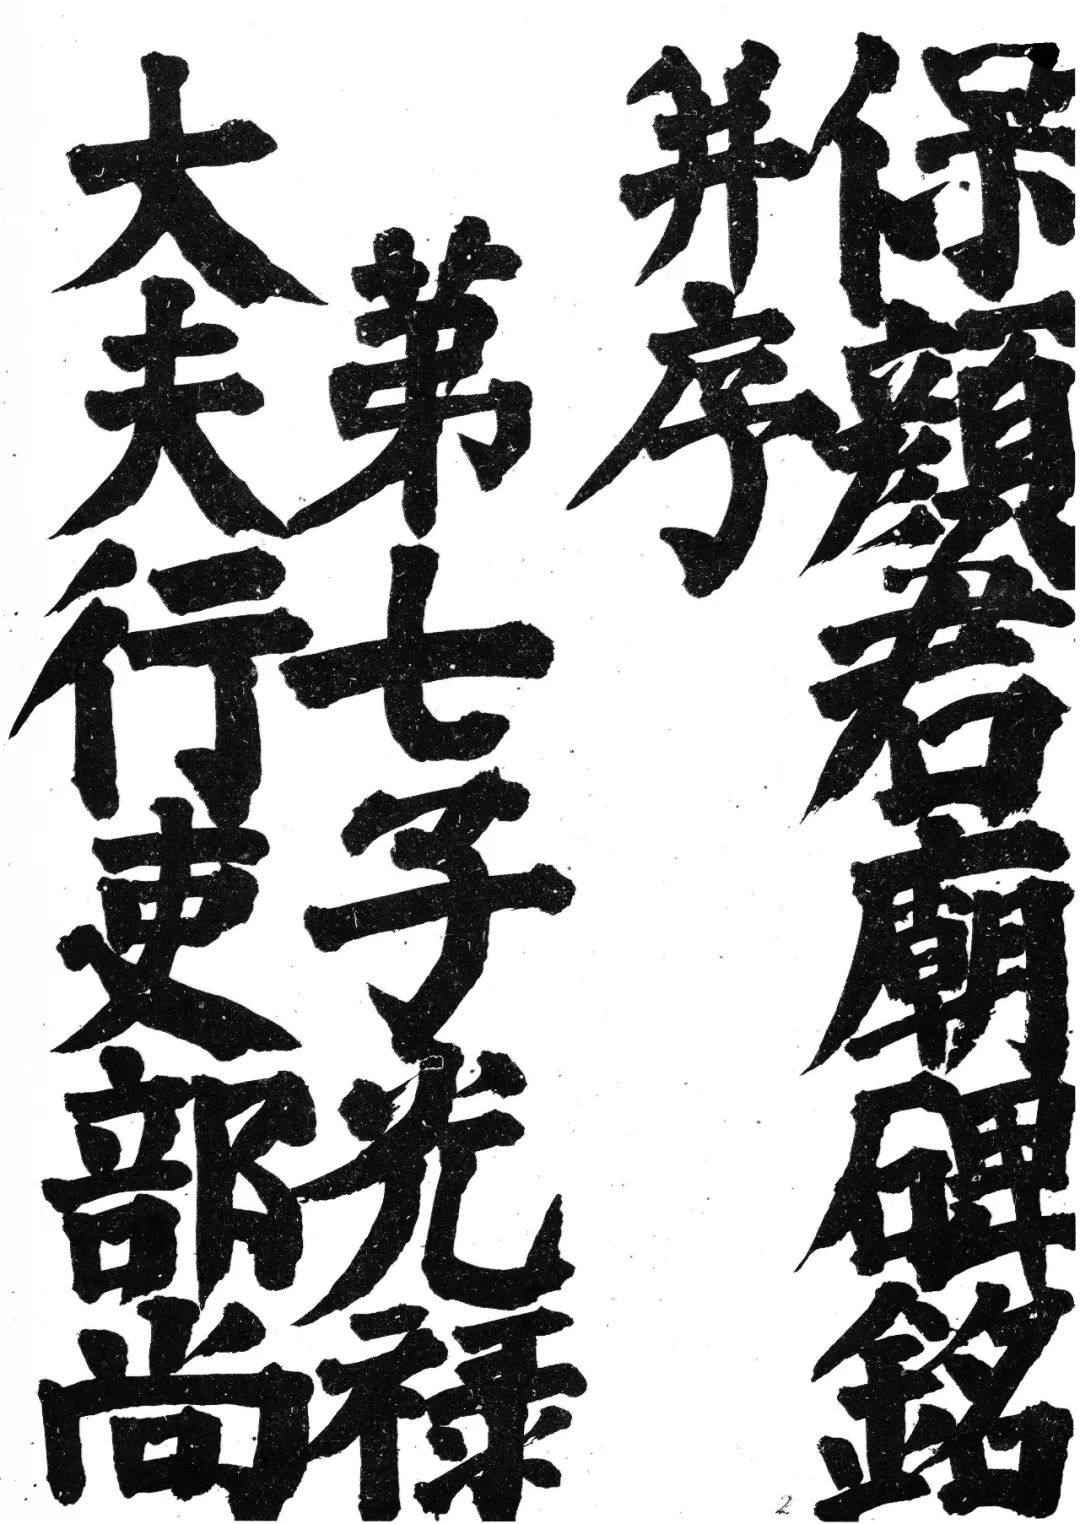 保顔君廟碑銘
并序
第七子光禄
大夫行吏部尚
2